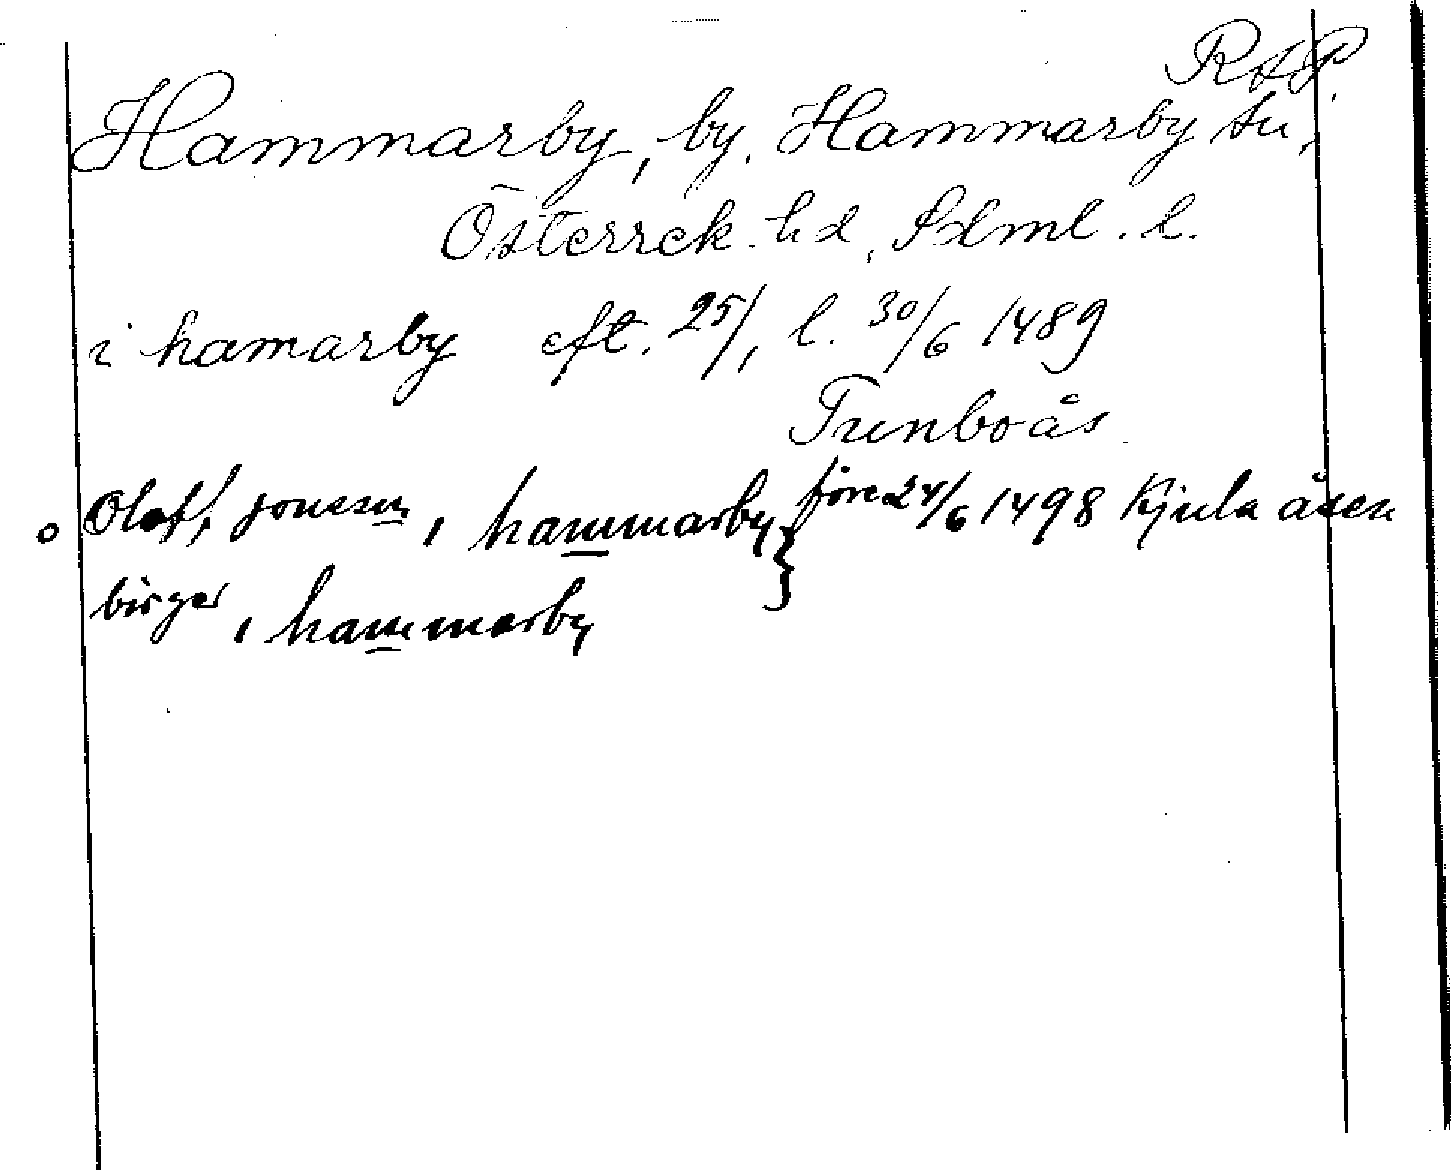 RAP.
Hammarby, by, Hammarby sn,
Österrek. hd, Sdml. l.
i hamarby eft. 25/1 l. 30/6 1489
Tunboås
o Olaff jonsson i hammarby } före 24/6 1498 Kjula åsen
birger i hammarby